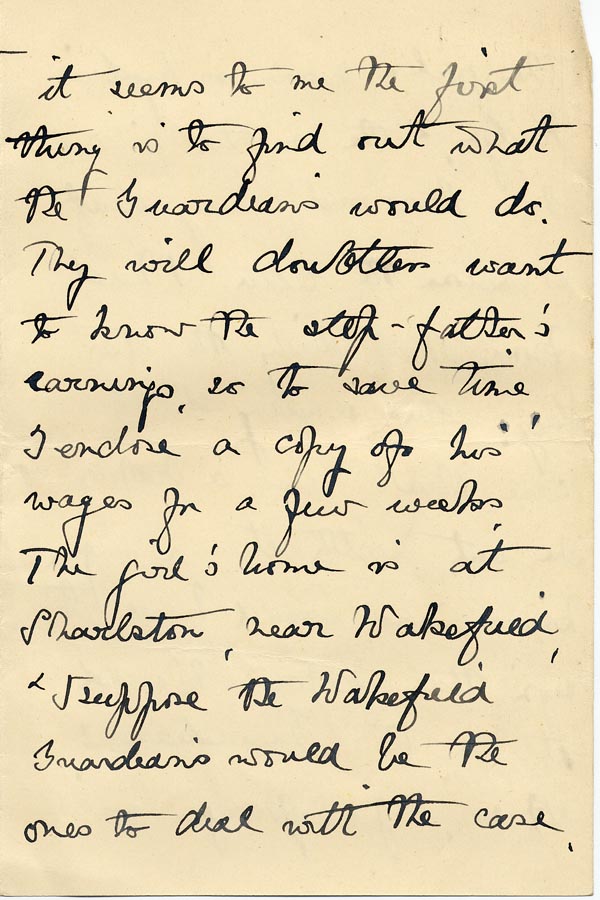 it seems to me the first
thing is to find out what
the Guardians would do.
They will doubtless want
to know the step-father's
earnings, so to save time
I enclose a copy of his
wages for a few weeks.
The girl's home is at
Sharlston, near Wakefield,
& I suppose the Wakefield
Guardians would be the
ones to deal with the case.